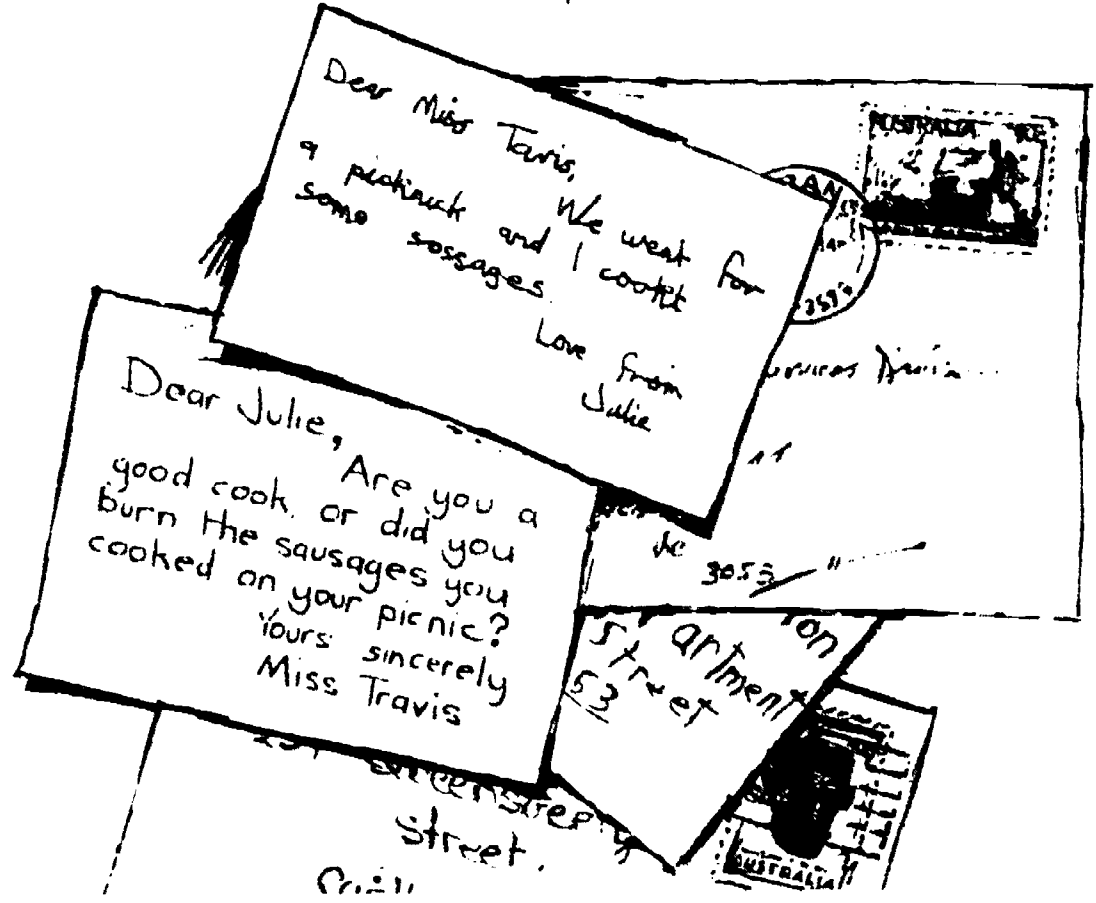 Dear Miss Tavis,
We went for
a picknick and I cookt
some sossages.
Love from
Julie
AUSTRALIA
Dear Julie,
Are you a
good cook or did you
burn the sausages you
cooked on your picnic?
Yours sincerely
Miss Travis
3053
artment
Street
53
Street.
AUSTRALIA